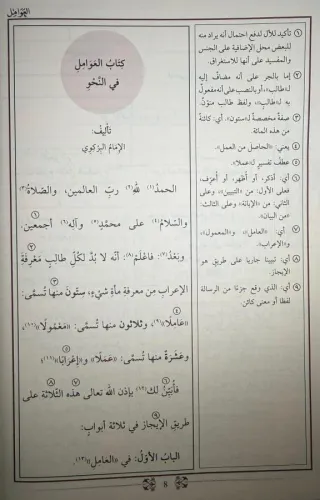 العوامل
كِتَابُ العَوَامِلِ
في النَّحْوِ
تأليفُ:
الإمَامُ البِرْكوِي
الحمدُ(١) للهِ(٢) ربِّ العالمين، والصَّلاةُ(٣)
والسَّلامُ(٤) على محمَّدٍ(٥) وآلِهِ(٦) أجمعين.
وبَعْدُ(٧): فَاعْلَمْ(٨): أنَّه لا بُدَّ لكلِّ طالبِ مَعْرِفَةِ
الإعرابِ مِن معرفةِ مائةِ شيْءٍ، سِتُّونَ منها تُسمَّى:
«عَامِلًا»(٩)، وثلاثون منها تُسمَّى: «مَعْمُولًا»(١٠)،
وعَشَرَةٌ منها تُسمَّى: «عَمَلًا» و«إعْرَابًا»(١١)
فأُبَيِّنُ لك(١٢) بإذن الله تعالى هذه الثَّلاثة على
طريقِ الإيجازِ في ثلاثة أبوابٍ:
البابُ الأوَّلُ: في «العامل»(١٣).
١ تأكيد للآل لدفع احتمال أنه يراد منه
للبعض محل الإضافية على الجنس
والمفسيد على أنها للاستغراق.
٢ إما بالجر على أنه مضاف إليه
لـ«طالب»، أو بالنصب على أنه مفعول
به لـ«طالب»، ولفظ طالب منوّن.
٣ صفة مخصصة لـ«ستون». أي: كائنة
من هذه المائة
٤ يعني: «الحاصل من العمل».
٥ عطف تفسير لـ«عملا».
٦ أي: أذكر، أو أظهر، أو أعرّف،
فعلى الأول: من «التبيين»، وعلى
الثاني: من «الإبانة» وعلى الثالث:
من «البيان».
٧ أي: «العامل» و«المعمول»
و«الإعراب».
٨ أي: تبيينا جاريا على طريق هو
الإيجاز.
٩ أي: الذي وقع جزءًا من الرسالة
لفظا أو معنى كائن.
8